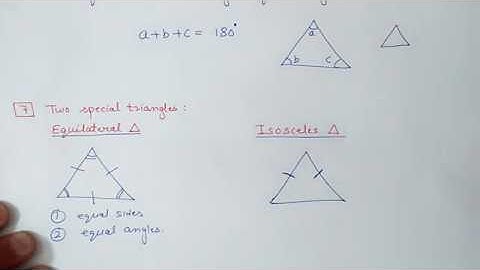 a+b+c = 180°
a
b c
7 Two special triangles:
Equilateral △ Isosceles △
① equal sides
② equal angles.